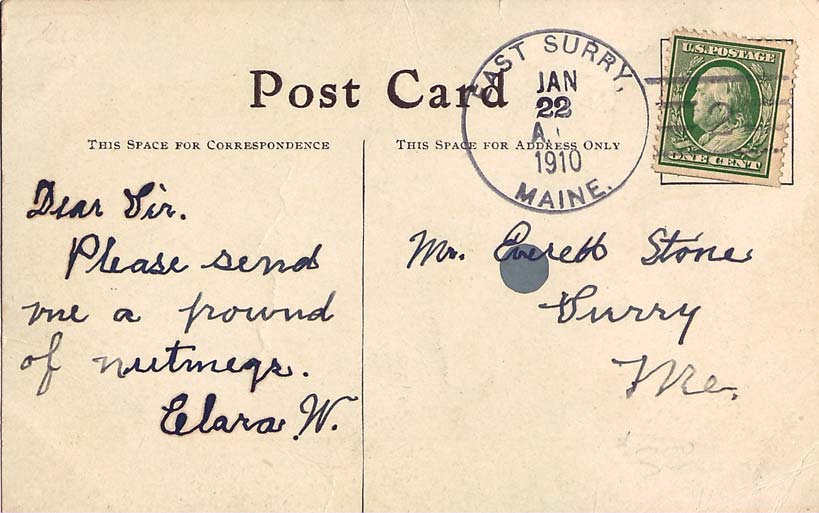 Post Card
THIS SPACE FOR CORRESPONDENCE
THIS SPACE FOR ADDRESS ONLY
EAST SURRY,
JAN
22
A.
1910
MAINE.
U.S. POSTAGE
ONE CENT
Dear Sir.
Please send
me a pound
of nutmegs.
Clara W.
Mr. Everett Stone
Surry
Me.